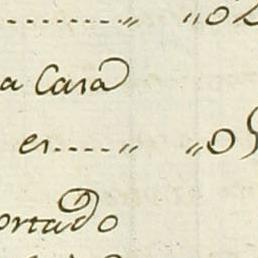 ........... „ „02
a Casa
es..... „ „09
ortado